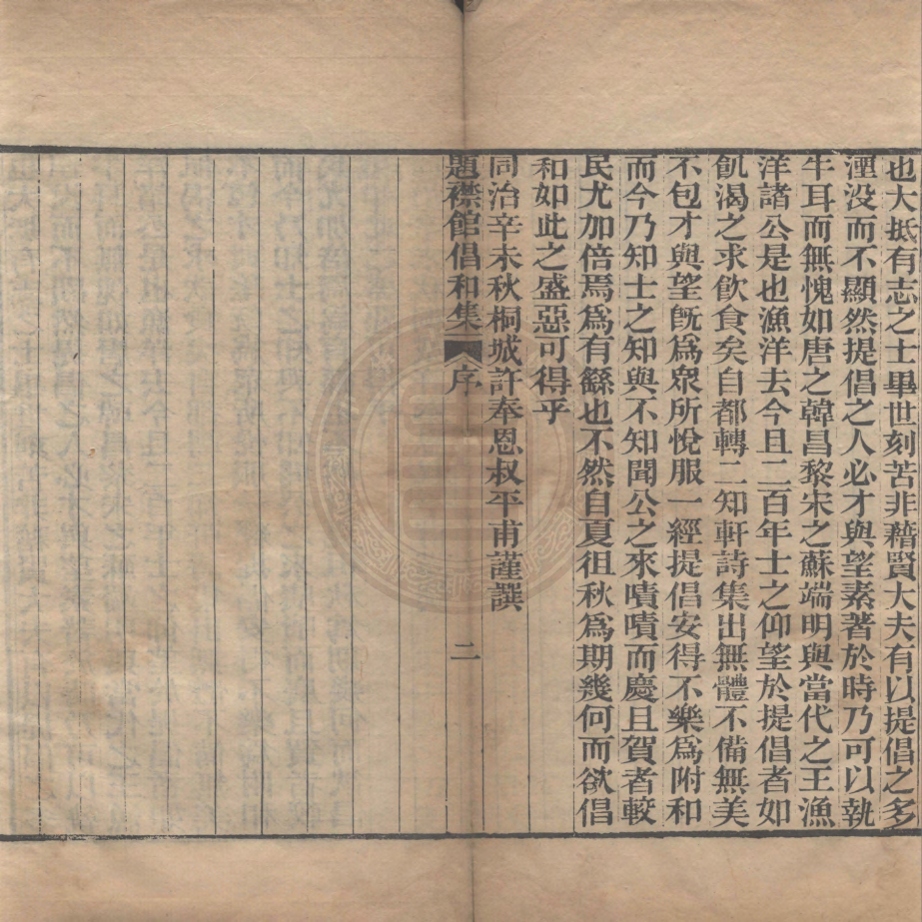 也大抵有志之士畢世刻苦非藉賢大夫有以提倡之多
湮没而不顯然提倡之人必才與望素著於時乃可以執
牛耳而無愧如唐之韓昌黎宋之蘇端明與當代之王漁
洋諸公是也漁洋去今且二百年士之仰望於提倡者如
飢渴之求飲食矣自都轉二知軒詩集出無體不備無美
不包才與望旣爲衆所悅服一經提倡安得不樂爲附和
而今乃知士之知與不知聞公之來嘖嘖而慶且賀者較
民尤加倍焉爲有繇也不然自夏徂秋爲期幾何而欲倡
和如此之盛惡可得乎
同治辛未秋桐城許奉恩叔平甫謹譔
題襟館倡和集 序 二